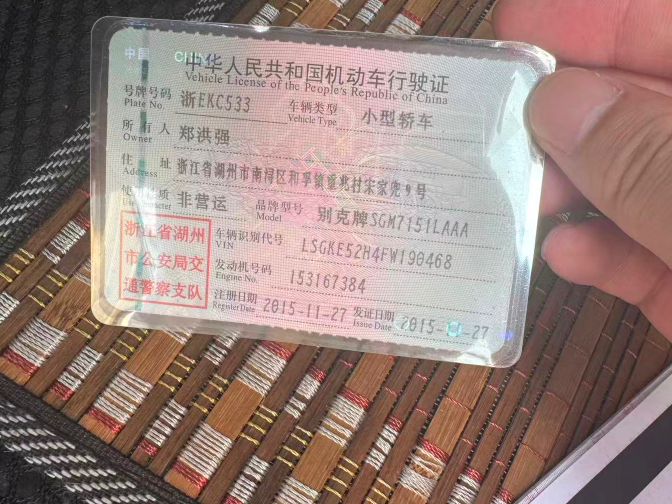 中国 CHINA
中华人民共和国机动车行驶证
Vehicle License of the People's Republic of China
号牌号码 浙EKC533 车辆类型 小型轿车
Plate No. Vehicle Type
所有人 郑洪强
Owner
住址 浙江省湖州市南浔区和孚镇重兆村宋家兜9号
Address
使用性质 非营运 品牌型号 别克牌SGM7151LAAA
Model
浙江省湖州
市公安局交
通警察支队
车辆识别代号 LSGKE52H4FW190468
VIN
发动机号码 153167384
Engine No.
注册日期 2015-11-27 发证日期 2015-11-27
Register Date Issue Date